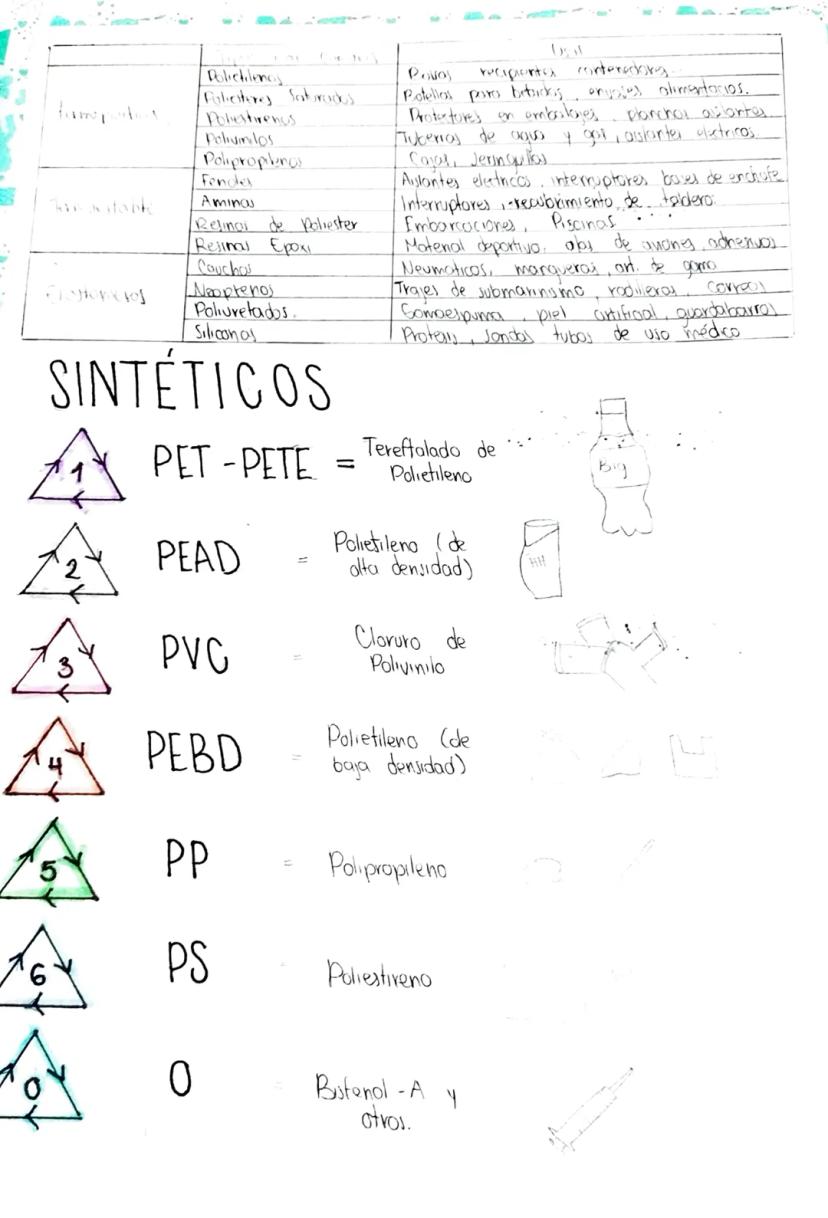 Uso
Polietilenos Bolsas recipientes contenedores
Poliesteres Saturados Botellas para bebidas, envases alimentacios.
Poliestirenos Protectores en embalajes, planchas aislantes
Polivinilos Tuberias de agua y gas, aislantes electricos
Polipropilenos Cajas, Jeringuillas
Fenoles Aislantes electricos, interruptores bases de enchufe
Aminas Interruptores, recubrimiento de tablero.
Resinas de Poliester Embarcaciones, Piscinas
Resinas Epoxi Material deportivo, alas de aviones, adhesivos
Elastomeros
Cauchos Neumaticos, mangueras, art. de goma
Neoprenos Trajes de submarinismo, rodilleras, correas
Poliuretados. Gomaespuma, piel artificial, guardabarros
Siliconas Protesis, sondas tubos de uso médico
SINTÉTICOS
1 PET - PETE = Tereftalado de
Polietileno
Big
2 PEAD = Polietileno (de
alta densidad)
HH
3 PVC = Cloruro de
Polivinilo
4 PEBD = Polietileno (de
baja densidad)
5 PP = Polipropileno
6 PS Poliestireno
0 O Bisfenol - A y
otros.